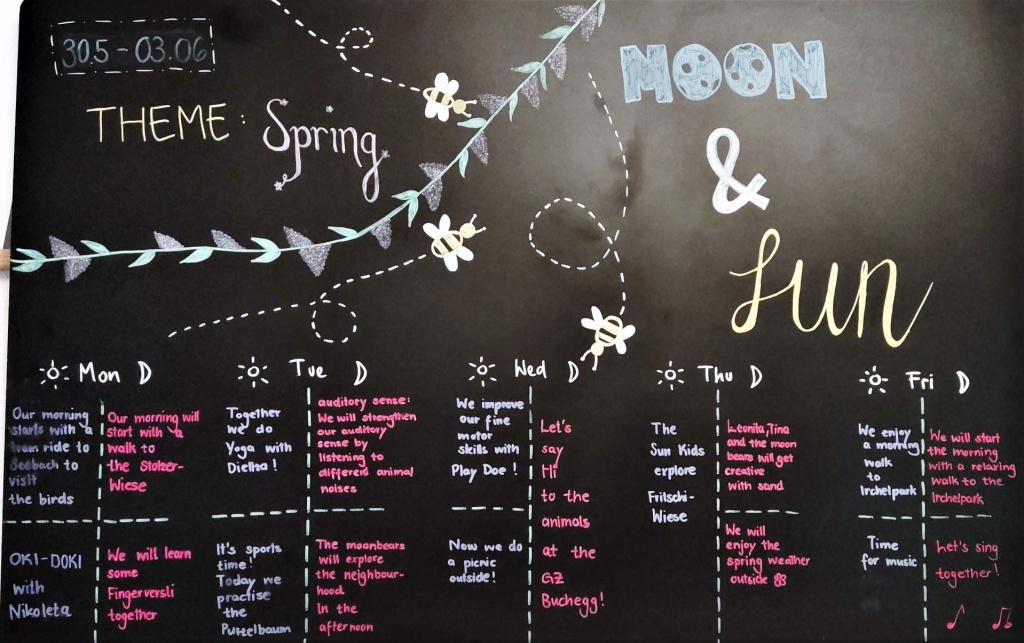 30.5 - 03.06
THEME: Spring
MOON
&
Sun
Mon
Our morning
starts with a
tram ride to
Seebach to
visit
the birds
Our morning will
start with a
walk to
the Stolzer-
Wiese
OKI-DOKI
with
Nikoleta
We will learn
some
Fingerversli
together
Tue
Together
we do
Yoga with
Dielha!
auditory sense:
We will strengthen
our auditory
sense by
listening to
different animal
noises
It's sports
time!
Today we
practise
the
Purzelbaum
The moonbears
will explore
the neighbour-
hood
in the
afternoon
Wed
We improve
our fine
motor
skills with
Play Doe!
Now we do
a picnic
outside!
Let's
say
Hi
to the
animals
at the
GZ
Buchegg!
Thu
The
Sun Kids
explore
Fritschi-
Wiese
Leonita, Tina
and the moon
bears will get
creative
with sand
We will
enjoy the
spring weather
outside
Fri
We enjoy
a morning
walk
to
Irchelpark
We will start
the morning
with a relaxing
walk to the
Irchelpark
Time
for music
Let's sing
together!